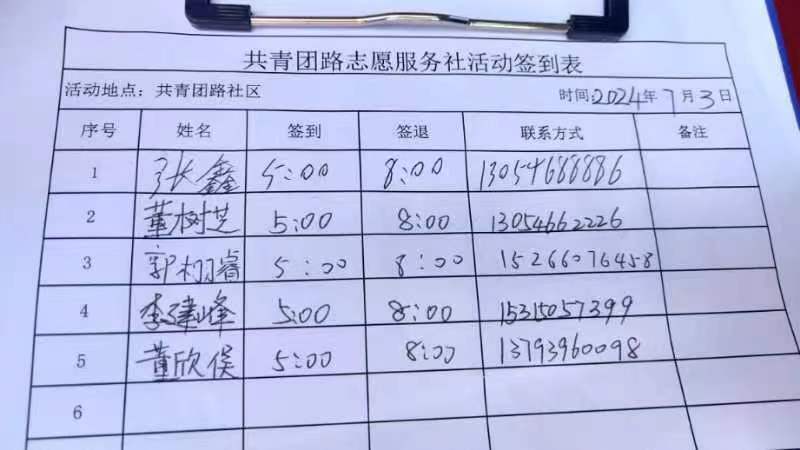 共青团路志愿服务社活动签到表
活动地点：共青团路社区 时间:2024年7月3日
序号 姓名 签到 签退 联系方式 备注
1 张鑫 5:00 8:00 13054688886
2 董树芝 5:00 8:00 13054662226
3 郭栩睿 5:00 8:00 15266076458
4 李建峰 5:00 8:00 15315057399
5 董欣俣 5:00 8:00 13793960098
6